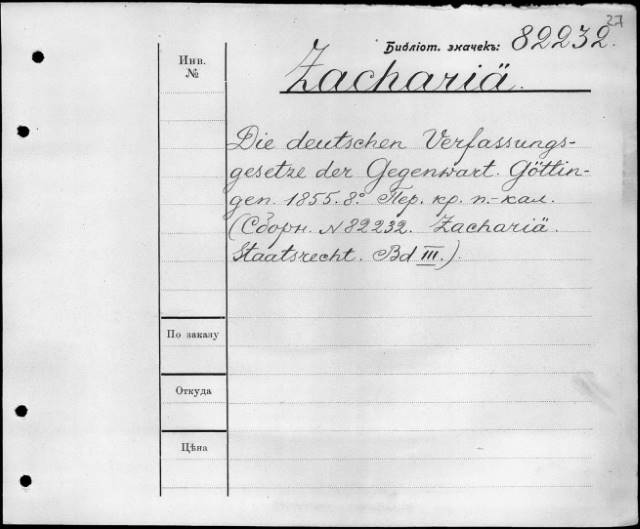 27
Библіот. значекъ: 82232.
Инв.
№
Zachariä.
Die deutschen Verfassungs-
gesetze der Gegenwart. Göttin-
gen. 1855. 8º. Пер. кр. п.-кал.
(Сборн. N 82232. Zachariä.
Staatsrecht. Bd III.)
По заказу
Откуда
Цѣна